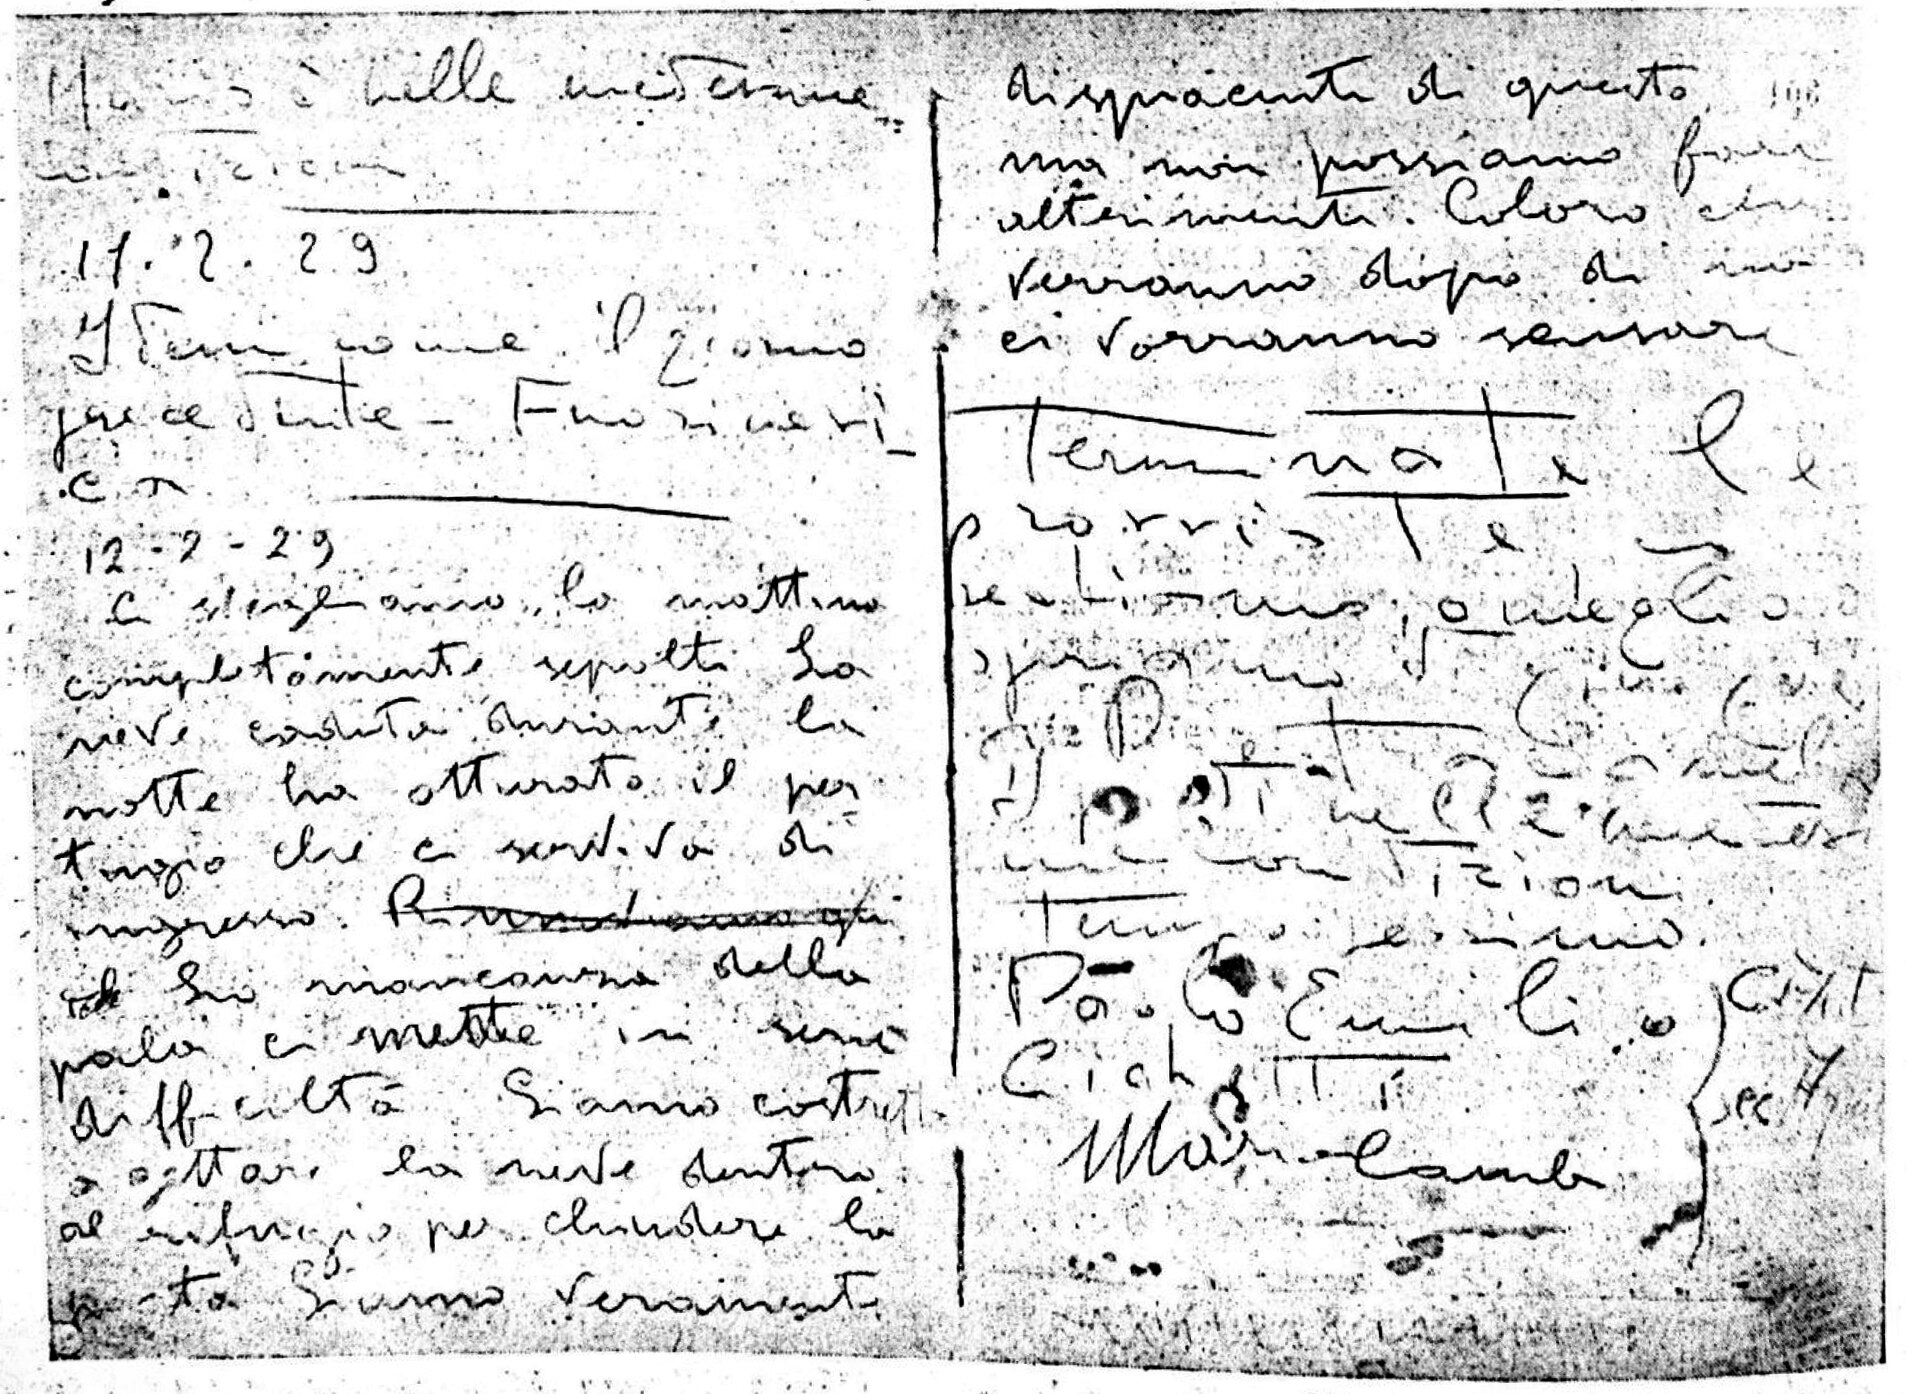 Mario è nelle medesime
condizioni
11.2.29
Idem come il giorno
precedente - Fuori nevi-
ca
12-2-29
Ci svegliamo la mattina
completamente sepolti La
neve caduta durante la
notte ha otturato il per
tugio che ci serviva di
ingresso.
La mancanza della
pala ci mette in serie
difficoltà Siamo costretti
a gettare la neve dentro
al rifugio per chiudere la
porta Siamo veramente
dispiacenti di questo
ma non possiamo fare
altrimenti. Coloro che
verranno dopo di noi
ci vorranno scusare
Terminate le
provviste
partiamo, o meglio
speriamo di
nelle medes
ime condizioni
Tempo
Paolo Emilio
Cichetti
Mario Camb